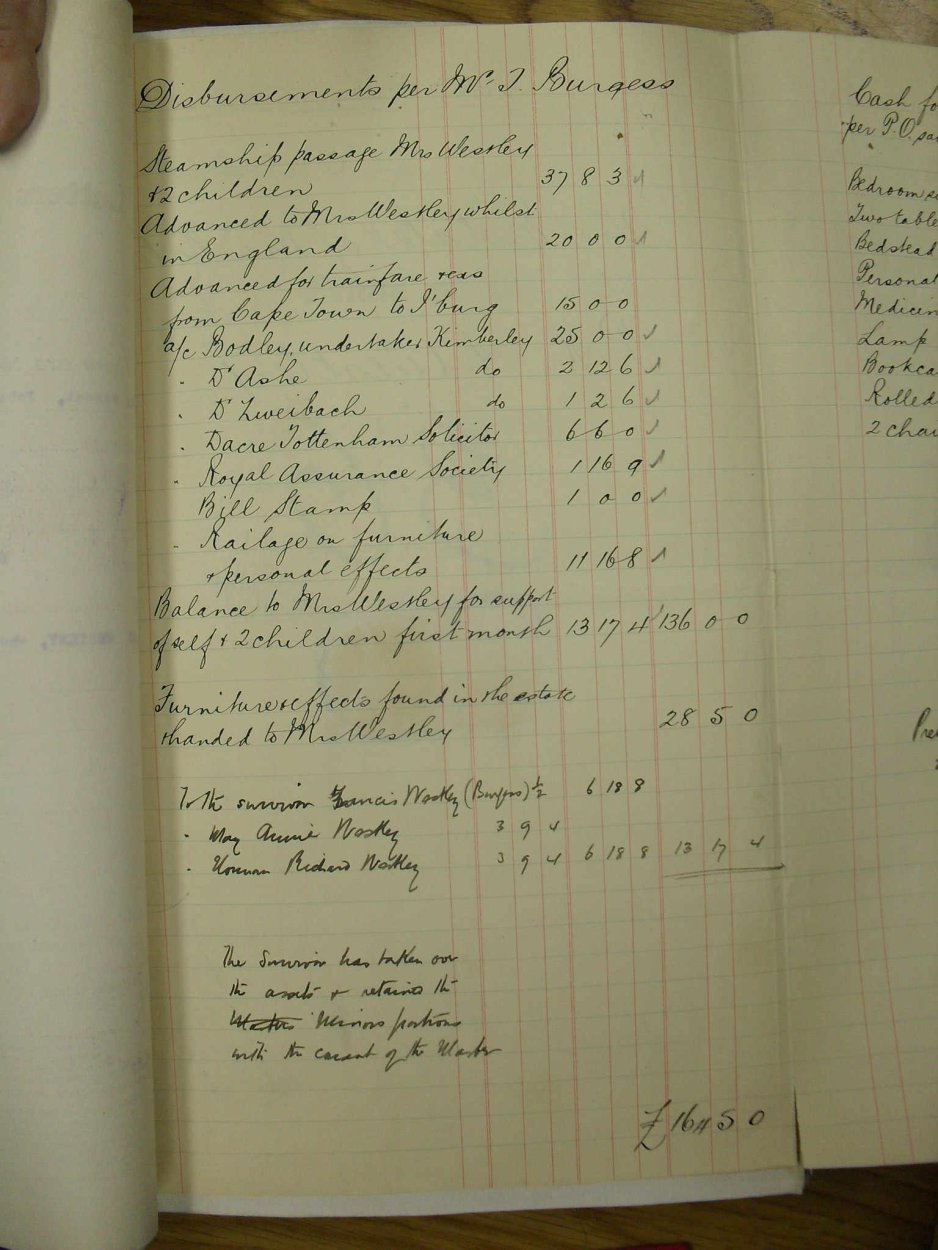 Disbursements per Mr. T. Burgess
Steamship passage Mrs Westley
+2 children 37 8 3
Advanced to Mrs Westley whilst
in England 20 0 0
Advanced for trainfare +exs
from Cape Town to J'burg 15 0 0
a/c Bodley, undertaker, Kimberley 25 0 0
" Dr Ashe do 2 12 6
" Dr Zweibach do 1 2 6
" Dacre Tottenham Solicitor 6 6 0
" Royal Assurance Society 1 16 9
Bill Stamp 1 0 0
" Railage on furniture
+personal effects 11 16 8
Balance to Mrs Westley for support
of self + 2 children first month 13 17 4 136 0 0
Furniture+effects found in the estate
+handed to Mrs Westley 28 5 0
To the survivor Francis Westley (Burgess) ½ 6 18 8
" May Annie Westley 3 9 4
" Norman Richard Westley 3 9 4 6 18 8 13 17 4
The Survivor has taken over
the assets + retains the
Masters Minors portions
with the consent of the Master
£164 5 0
Cash fo
per P.O. sa
Bedroom su
Two table
Bedstead
Personal
Medicin
Lamp
Bookca
Rolled
2 chai